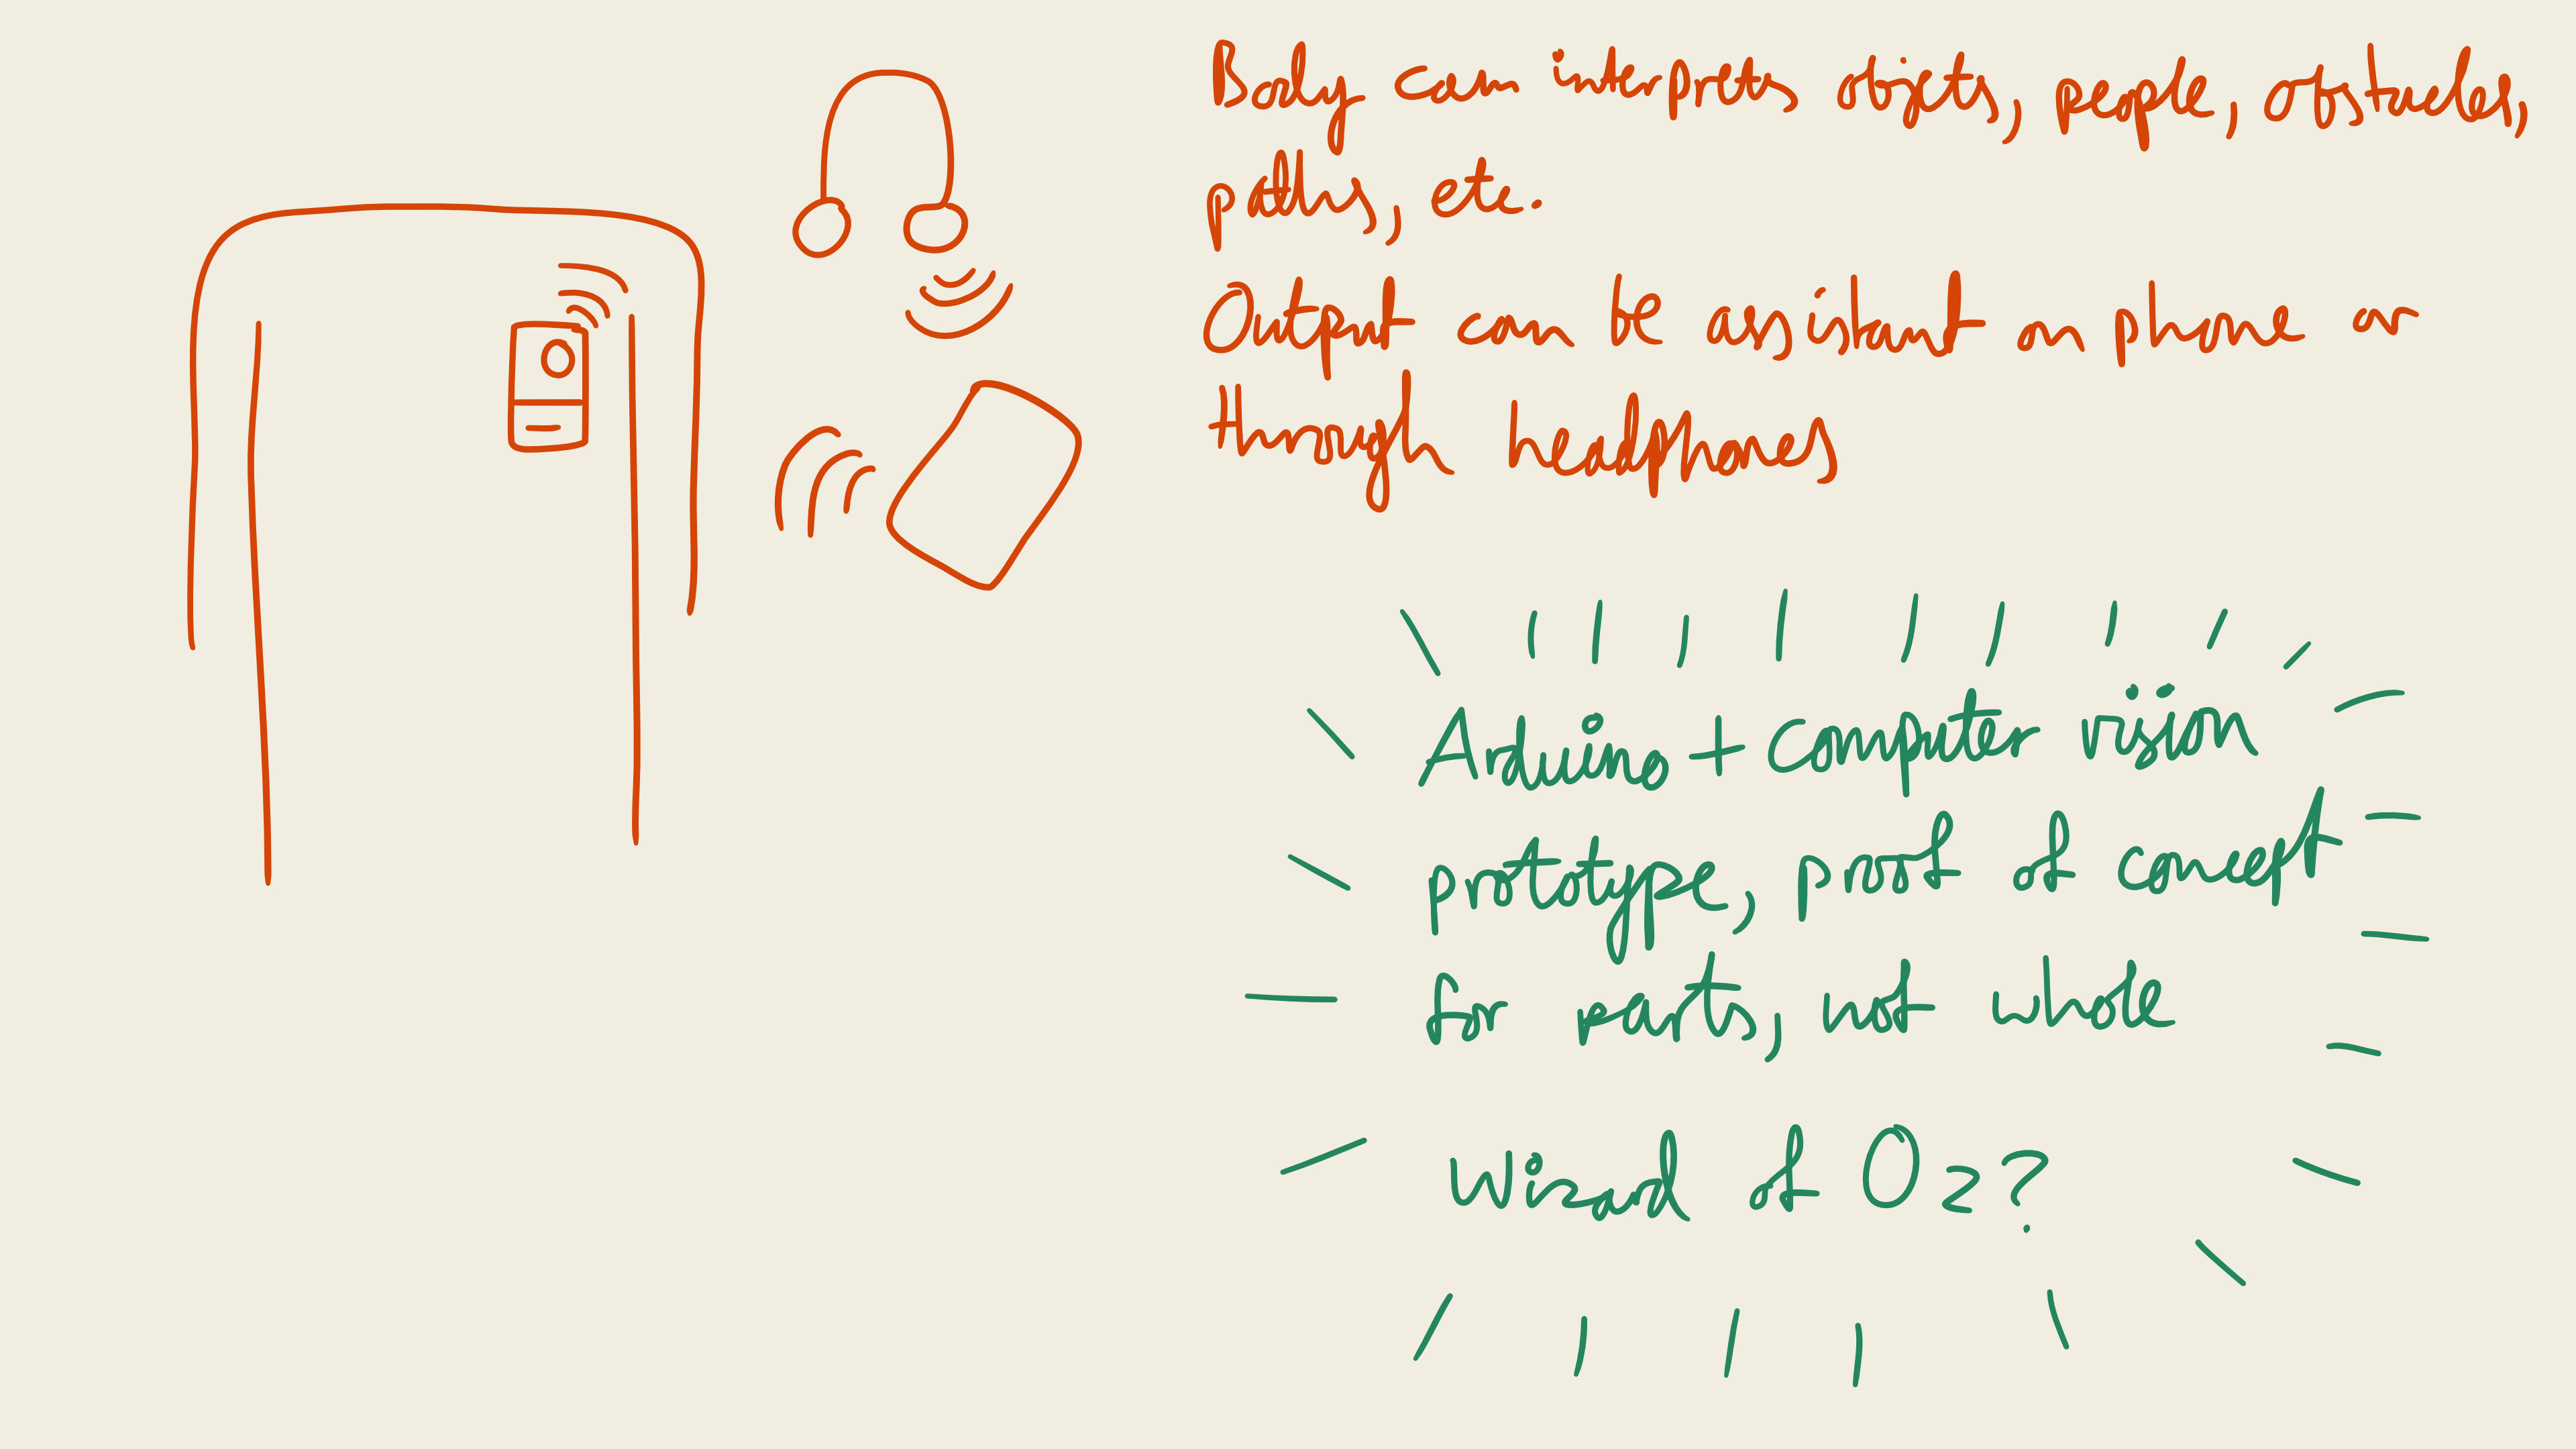 Body cam interprets objets, people, obstacles,
paths, etc.
Output can be assistant on phone or
through headphones
Arduino + Computer vision
prototype, proof of concept
for parts, not whole
Wizard of Oz?